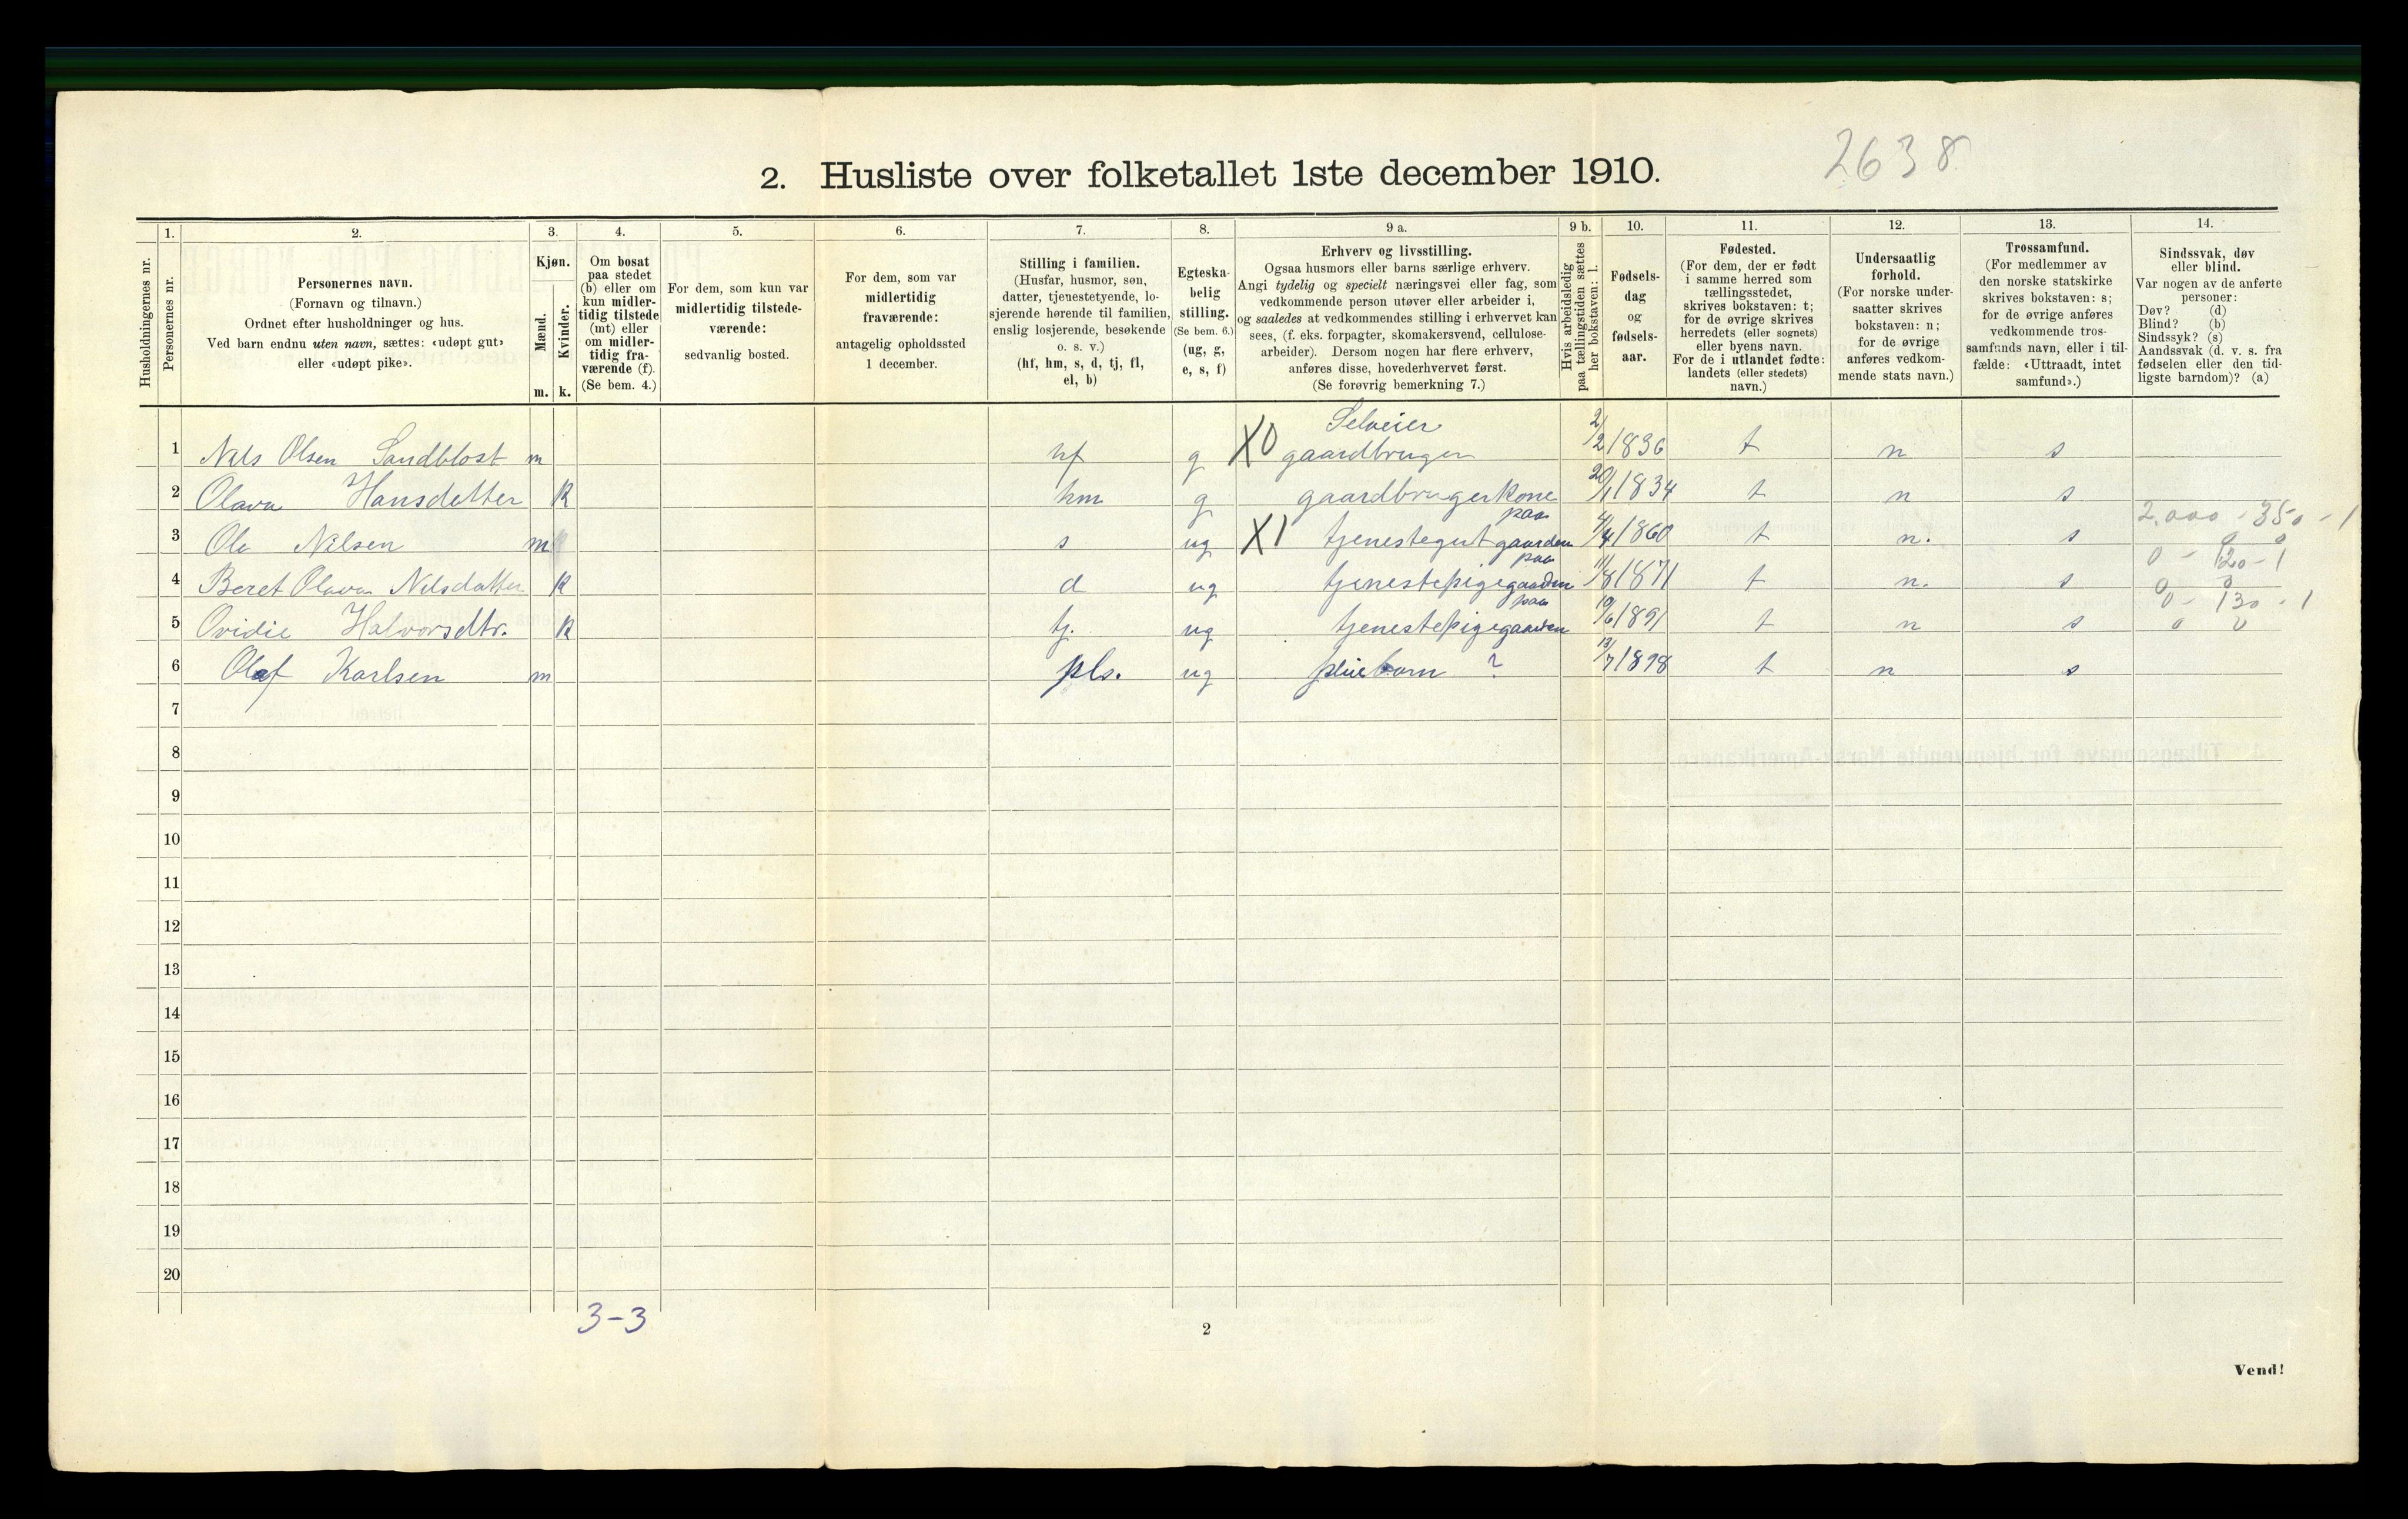 2638
2. Husliste over folketallet 1ste december 1910.
Husholdningernes nr.
1.
Personernes nr.
2.
Personernes navn.
(Fornavn og tilnavn.)
Ordnet efter husholdninger og hus.
Ved barn endnu uten navn, sættes: «udøpt gut»
eller «udøpt pike».
3.
Kjøn.
Mænd.
Kvinder.
m. k.
4.
Om bosat
paa stedet
(b) eller om
kun midler-
tidig tilstede
(mt) eller
om midler-
tidig fra-
værende (f).
(Se bem. 4.)
5.
For dem, som kun var
midlertidig tilstede-
værende:
sedvanlig bosted.
6.
For dem, som var
midlertidig
fraværende:
antagelig opholdssted
1 december.
7.
Stilling i familien.
(Husfar, husmor, søn,
datter, tjenestetyende, lo-
sjerende hørende til familien,
enslig losjerende, besøkende
o. s. v.)
(hf, hm, s, d, tj, fl,
el, b)
8.
Egteska-
belig
stilling.
(Se bem. 6.)
(ug, g,
e, s, f)
9 a.
Erhverv og livsstilling.
Ogsaa husmors eller barns særlige erhverv.
Angi tydelig og specielt næringsvei eller fag, som
vedkommende person utøver eller arbeider i,
og saaledes at vedkommendes stilling i erhvervet kan
sees, (f. eks. forpagter, skomakersvend, cellulose-
arbeider). Dersom nogen har flere erhverv,
anføres disse, hovederhvervet først.
(Se forøvrig bemerkning 7.)
9 b.
Hvis arbeidsledig
paa tællingstiden sættes
her bokstaven: l.
10.
Fødsels-
dag
og
fødsels-
aar.
11.
Fødested.
(For dem, der er født
i samme herred som
tællingsstedet,
skrives bokstaven: t;
for de øvrige skrives
herredets (eller sognets)
eller byens navn.
For de i utlandet fødte:
landets (eller stedets)
navn.)
12.
Undersaatlig
forhold.
(For norske under-
saatter skrives
bokstaven: n;
for de øvrige
anføres vedkom-
mende stats navn.)
13.
Trossamfund.
(For medlemmer av
den norske statskirke
skrives bokstaven: s;
for de øvrige anføres
vedkommende tros-
samfunds navn, eller i til-
fælde: «Uttraadt, intet
samfund».)
14.
Sindssvak, døv
eller blind.
Var nogen av de anførte
personer:
Døv? (d)
Blind? (b)
Sindssyk? (s)
Aandssvak (d. v. s. fra
fødselen eller den tid-
ligste barndom)? (a)
Selveier
1 Nils Olsen Sandblost m hf g X0 gaardbruger 2/2 1836 t n s
2 Olava Hansdatter k hm g gaardbrugerkone 20/1 1834 t n s
paa 2.000 - 350 - 1
3 Ole Nilsen m s ug X1 tjenestegut gaarden 4/4 1860 t n. s 0 0
paa 0 - 120 - 1
4 Beret Olava Nilsdatter k d ug tjenestepige gaarden 11/8 1871 t n. s 0 0
paa 0 - 130 - 1
5 Ovidie Halvorsdtr. k tj. ug tjenestepige gaarden 19/6 1891 t n s 0 0
6 Olaf Karlsen m pls. ug pleiebarn ? 13/7 1898 t n s
7
8
9
10
11
12
13
14
15
16
17
18
19
20
3-3
2
Vend!